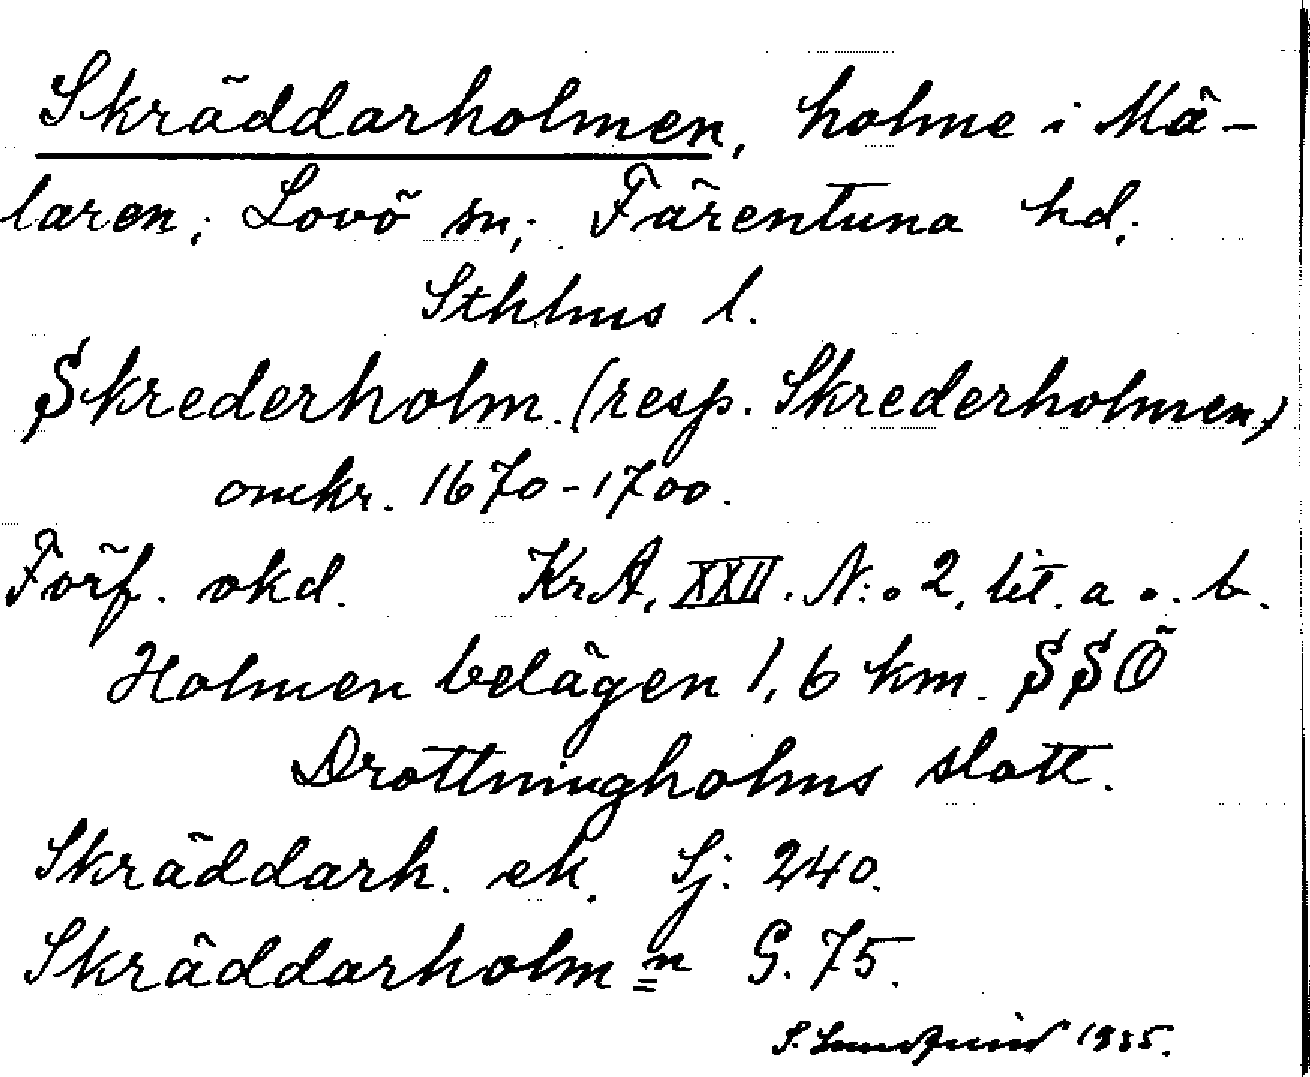 Skräddarholmen, holme i Mä-
laren; Lovö sn; Färentuna hd;
Sthlms l.
Skrederholm (resp. Skrederholmen)
omkr. 1670-1700.
Förf. okd. KrA, XXII. N:o 2, lit. a o. b.
Holmen belägen 1,6 km. SSÖ
Drottningholms slott.
Skräddarh. ek. Sj: 240.
Skräddarholm=n G. 75.
S. 1935.